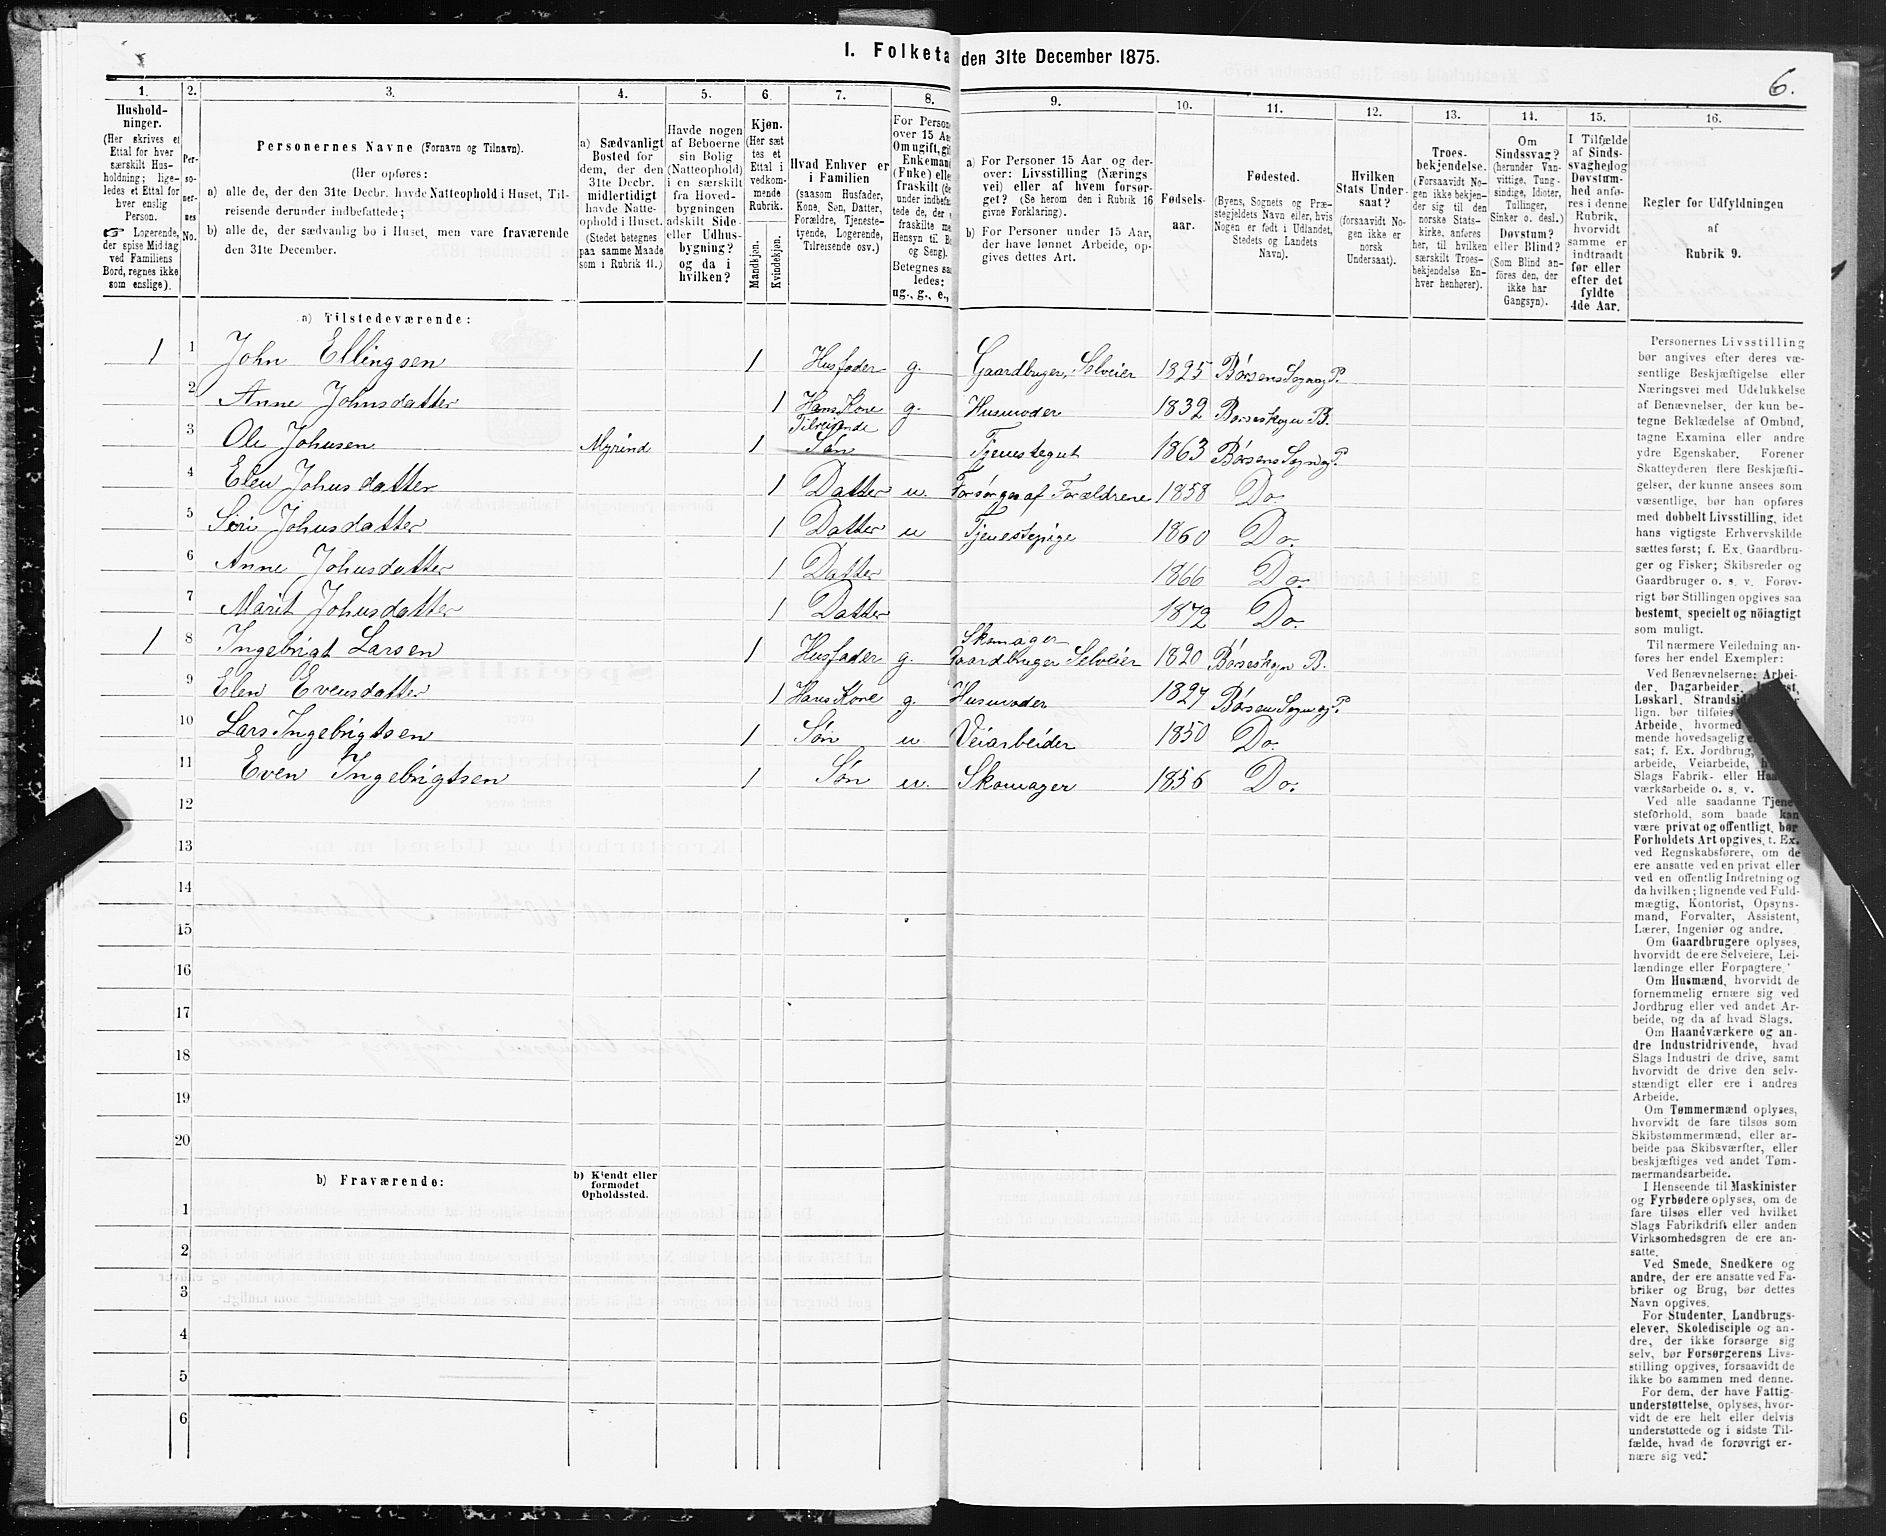 I. Folketa den 31te December 1875.
6.
1.
Hushold-
ninger.
(Her skrives et
Ettal for hver
særskilt Hus-
holdning; lige-
ledes et Ettal for
hver enslig
Person.
☞ Logerende,
der spise Middag
ved Familiens
Bord, regnes ikke
som enslige).
2.
Per-
so-
ner-
nes
No.
3.
Personernes Navne (Fornavn og Tilnavn).
(Her opføres:
a) alle de, der den 31te Decbr. havde Natteophold i Huset, Til-
reisende derunder indbefattede;
b) alle de, der sædvanlig bo i Huset, men vare fraværende
den 31te December.
4.
a) Sædvanligt
Bosted for
dem, der den
31te Decbr.
midlertidigt
havde Natte-
ophold i Huset.
(Stedet betegnes
paa samme Maade
som i Rubrik 11.)
5.
Havde nogen
af Beboerne
sin Bolig
(Natteophold)
i en særskilt
fra Hoved-
bygningen
adskilt Side-
eller Udhus-
bygning?
og da i
hvilken?
6.
Kjøn.
(Her sæt
tes et
Ettal i
vedkom-
mende
Rubrik.
Mandkjøn.
Kvindekjøn.
7.
Hvad Enhver er
i Familien
(saasom Husfader,
Kone, Søn, Datter,
Forældre, Tjeneste-
tyende, Logerende,
Tilreisende osv.)
8.
For Person
over 15 Aa
Om ugift, gif
Enkemand
(Enke) elle
fraskilt (de
under indbefat
tede de, der e
fraskilte me
Hensyn til B
og Seng).
Betegnes saa
ledes:
ug., g., e.,
9.
a) For Personer 15 Aar og der-
over: Livsstilling (Nærings
vei) eller af hvem forsør-
get? (Se herom den i Rubrik 16
givne Forklaring).
b) For Personer under 15 Aar,
der have lønnet Arbeide, op-
gives dettes Art.
10.
Fødsels-
aar.
11.
Fødested.
(Byens, Sognets og Præ-
stegjeldets Navn eller, hvis
Nogen er født i Udlandet,
Stedets og Landets
Navn).
12.
Hvilken
Stats Under-
saat?
(forsaavidt No-
gen ikke er
norsk
Undersaat).
13.
Troes-
bekjendelse.
(Forsaavidt No-
gen ikke bekjen-
der sig til den
norske Stats-
kirke, anføres
her, til hvilken
særskilt Troes-
bekjendelse En-
hver henhører).
14.
Om
Sindssvag?
(herunder Van-
vittige, Tung-
sindige, Idioter,
Tullinger,
Sinker o. desl.)
Døvstum?
eller Blind?
(Som Blind an-
føres den, der
ikke har
Gangsyn).
15.
I Tilfælde
af Sinds-
svaghed og
Døvstum-
hed anfø-
res i denne
Rubrik,
hvorvidt
samme er
indtraadt
før eller
efter det
fyldte
4de Aar.
16.
Regler for Udfyldningen
af
Rubrik 9.
a) Tilstedeværende:
1 1 John Ellingsen 1 Husfader g. Gaardbruger, Selveier 1825 Børsens Sogn og P.
2 Anne Johnsdatter 1 Hans Kone g. Husmoder 1832 Børseskogn B.
Tilreisende
3 Ole Johnsen Myrind 1 Søn Tjenestegut 1863 Børsens Sogn og P.
4 Elen Johnsdatter 1 Datter u. Forsørges af Forældrene 1858 Do.
5 Siri Johnsdatter 1 Datter u Tjenestepige 1860 Do.
6 Anne Johnsdatter 1 Datter 1866 Do.
7 Marit Johnsdatter 1 Datter 1872 Do.
Skomager
1 8 Ingebrigt Larsen 1 Husfader g. Gaardbruger Selveier 1820 Børseskogn B.
9 Elen Evensdatter 1 Hans Kone g. Husmoder 1827 Børsens Sogn og P.
10 Lars Ingebrigtsen 1 Søn u Veiarbeider 1850 Do.
11 Even Ingebrigtsen 1 Søn u. Skomager 1856 Do.
12
13
14
15
16
17
18
19
20
b) Fraværende:
b) Kjendt eller
formodet
Opholdssted.
1
2
3
4
5
6
Personernes Livsstilling
bør angives efter deres væ-
sentlige Beskjæftigelse eller
Næringsvei med Udelukkelse
af Benævnelser, der kun be-
tegne Beklædelse af Ombud,
tagne Examina eller andre
ydre Egenskaber. Forener
Skatteyderen flere Beskjæfti-
gelser, der kunne ansees som
væsentlige, bør han opføres
med dobbelt Livsstilling, idet
hans vigtigste Erhvervskilde
sættes først; f. Ex. Gaardbru-
ger og Fisker; Skibsreder og
Gaardbruger o. s. v. Forøv-
rigt bør Stillingen opgives saa
bestemt, specielt og nöiagtigt
som muligt.
Til nærmere Veiledning an-
føres her endel Exempler:
Ved Benævnelserne: Arbei-
der, Dagarbeider,
Løskarl, Strandsid
lign. bør tilføies
Arbeide, hvormed
mende hovedsagelig e
sat; f. Ex. Jordbrug,
arbeide, Veiarbeide,
Slags Fabrik- eller Haa
værksarbeide o. s. v.
Ved alle saadanne Tjene
steforhold, som baade kan
være privat og offentligt, bør
Forholdets Art opgives, t. Ex.
ved Regnskabsførere, om de
ere ansatte ved en privat eller
ved en offentlig Indretning og
da hvilken; lignende ved Fuld-
mægtig, Kontorist, Opsyns-
mand, Forvalter, Assistent,
Lærer, Ingeniør og andre.
Om Gaardbrugere oplyses,
hvorvidt de ere Selveiere, Lei-
lændinge eller Forpagtere.
Om Husmænd, hvorvidt de
fornemmelig ernære sig ved
Jordbrug eller ved andet Ar-
beide, og da af hvad Slags.
Om Haandværkere og an-
dre Industridrivende, hvad
Slags Industri de drive, samt
hvorvidt de drive den selv-
stændigt eller ere i andres
Arbeide.
Om Tømmermænd oplyses,
hvorvidt de fare tilsøs som
Skibstømmermænd, eller ar-
beide paa Skibsværfter, eller
beskjæftiges ved andet Tøm-
mermandsarbeide.
I Henseende til Maskinister
og Fyrbødere oplyses, om de
fare tilsøs eller ved hvilket
Slags Fabrikdrift eller anden
Virksomhedsgren de ere an-
satte.
Ved Smede, Snedkere og
andre, der ere ansatte ved Fa-
briker og Brug, bør dettes
Navn opgives.
For Studenter, Landbrugs-
elever, Skoledisciple og an-
dre, der ikke forsørge sig
selv, bør Forsørgerens Livs-
stilling opgives, forsaavidt de
ikke bo sammen med denne.
For dem, der have Fattig-
understøttelse, oplyses, hvor-
vidt de ere helt eller delvis
understøttede og i sidste Til-
fælde, hvad de forøvrigt er-
nære sig ved.